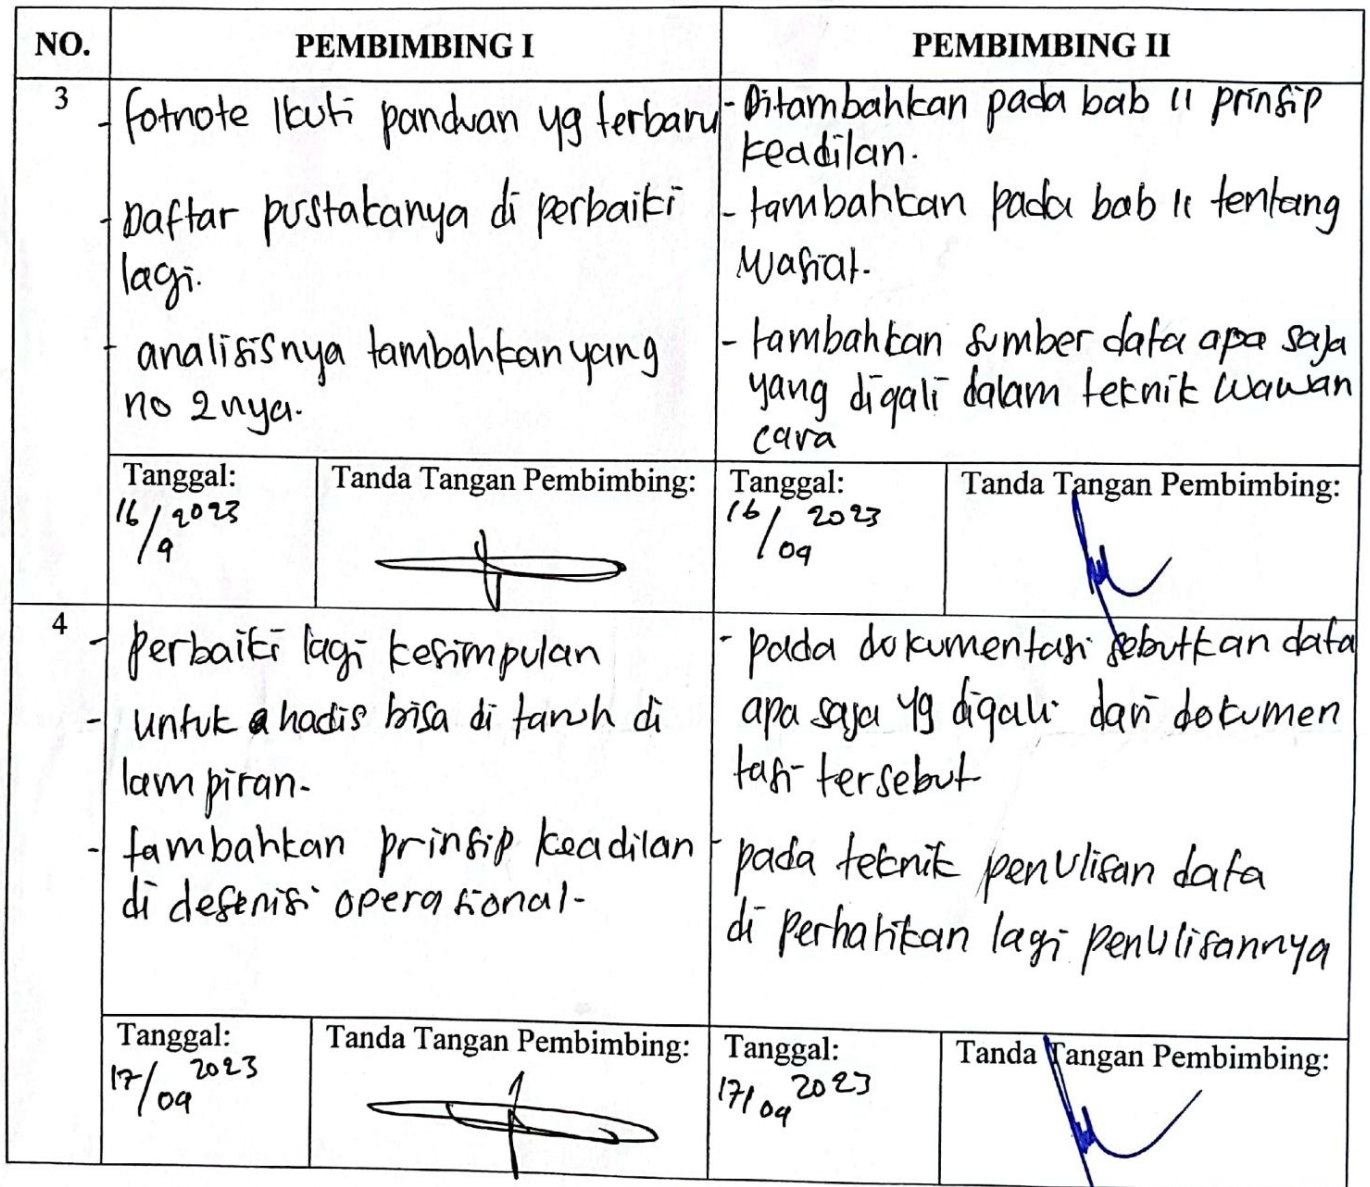 NO. PEMBIMBING I PEMBIMBING II
3
- fotnote Ikuti panduan yg terbaru
- Daftar pustakanya di perbaiki
lagi.
- analisisnya tambahkan yang
no 2nya.
- Ditambahkan pada bab II prinsip
keadilan.
- tambahkan pada bab II tentang
wasiat.
- tambahkan sumber data apa saja
yang digali dalam teknik wawan
cara
Tanggal: Tanda Tangan Pembimbing: Tanggal: Tanda Tangan Pembimbing:
16/9 2023 16/09 2023
4
- perbaiki lagi kesimpulan
- untuk hadis bisa di taruh di
lampiran.
- tambahkan prinsip keadilan
di defenisi operasional-
- pada dokumentasi sebutkan data
apa saja yg digali dari dokumen
tasi tersebut
- pada teknik penulisan data
di perhatikan lagi penulisannya
Tanggal: Tanda Tangan Pembimbing: Tanggal: Tanda Tangan Pembimbing:
17/09 2023 17/09 2023